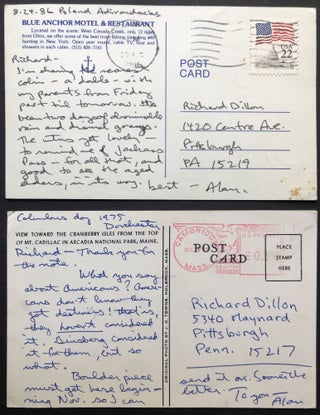 8-24-86 Poland Adirondacks
BLUE ANCHOR MOTEL & RESTAURANT
Located on the scenic West Canada Creek, only 12 miles
from Utica, we offer some of the best trout fishing, canoeing and
hunting in New York. Open year round, cable TV, heat and
showers in each cabin. (315) 826-7787
Richard:
I'm sharing the nearest
cabin - a double - with
my parents from Friday
past til tomorrow. Has
been two days of abominable
rain and dismal grays.
The utter get levels
to remind me of Jackass
Pass - for all that, and
good to see the aged
elders, in its way. best - Alan.
POST
CARD
USA
22
Richard Dillon
1420 Centre Ave.
Pittsburgh
PA 15219
Columbus day 1975
Dorchester
VIEW TOWARD THE CRANBERRY ISLES FROM THE TOP
OF MT. CADILLAC IN ARCADIA NATIONAL PARK, MAINE.
Richard - Thank you for
the note.
What you say
about Americans? Ameri-
cans don't know they
get destinies! that is,
they haven't considered
it. Ginsberg considered
it for them, but so
what.
Boulder piece
must get here begin-
ning Nov. so I can
ORIGINAL PHOTO BY J. D. TOWER, HOLBROOK, MASS.
CAMBRIDGE
MASS.
POST
CARD
PLACE
STAMP
HERE
Richard Dillon
5340 Maynard
Pittsburgh
Penn. 15217
send it on. Sooner the
better. To you
Alan